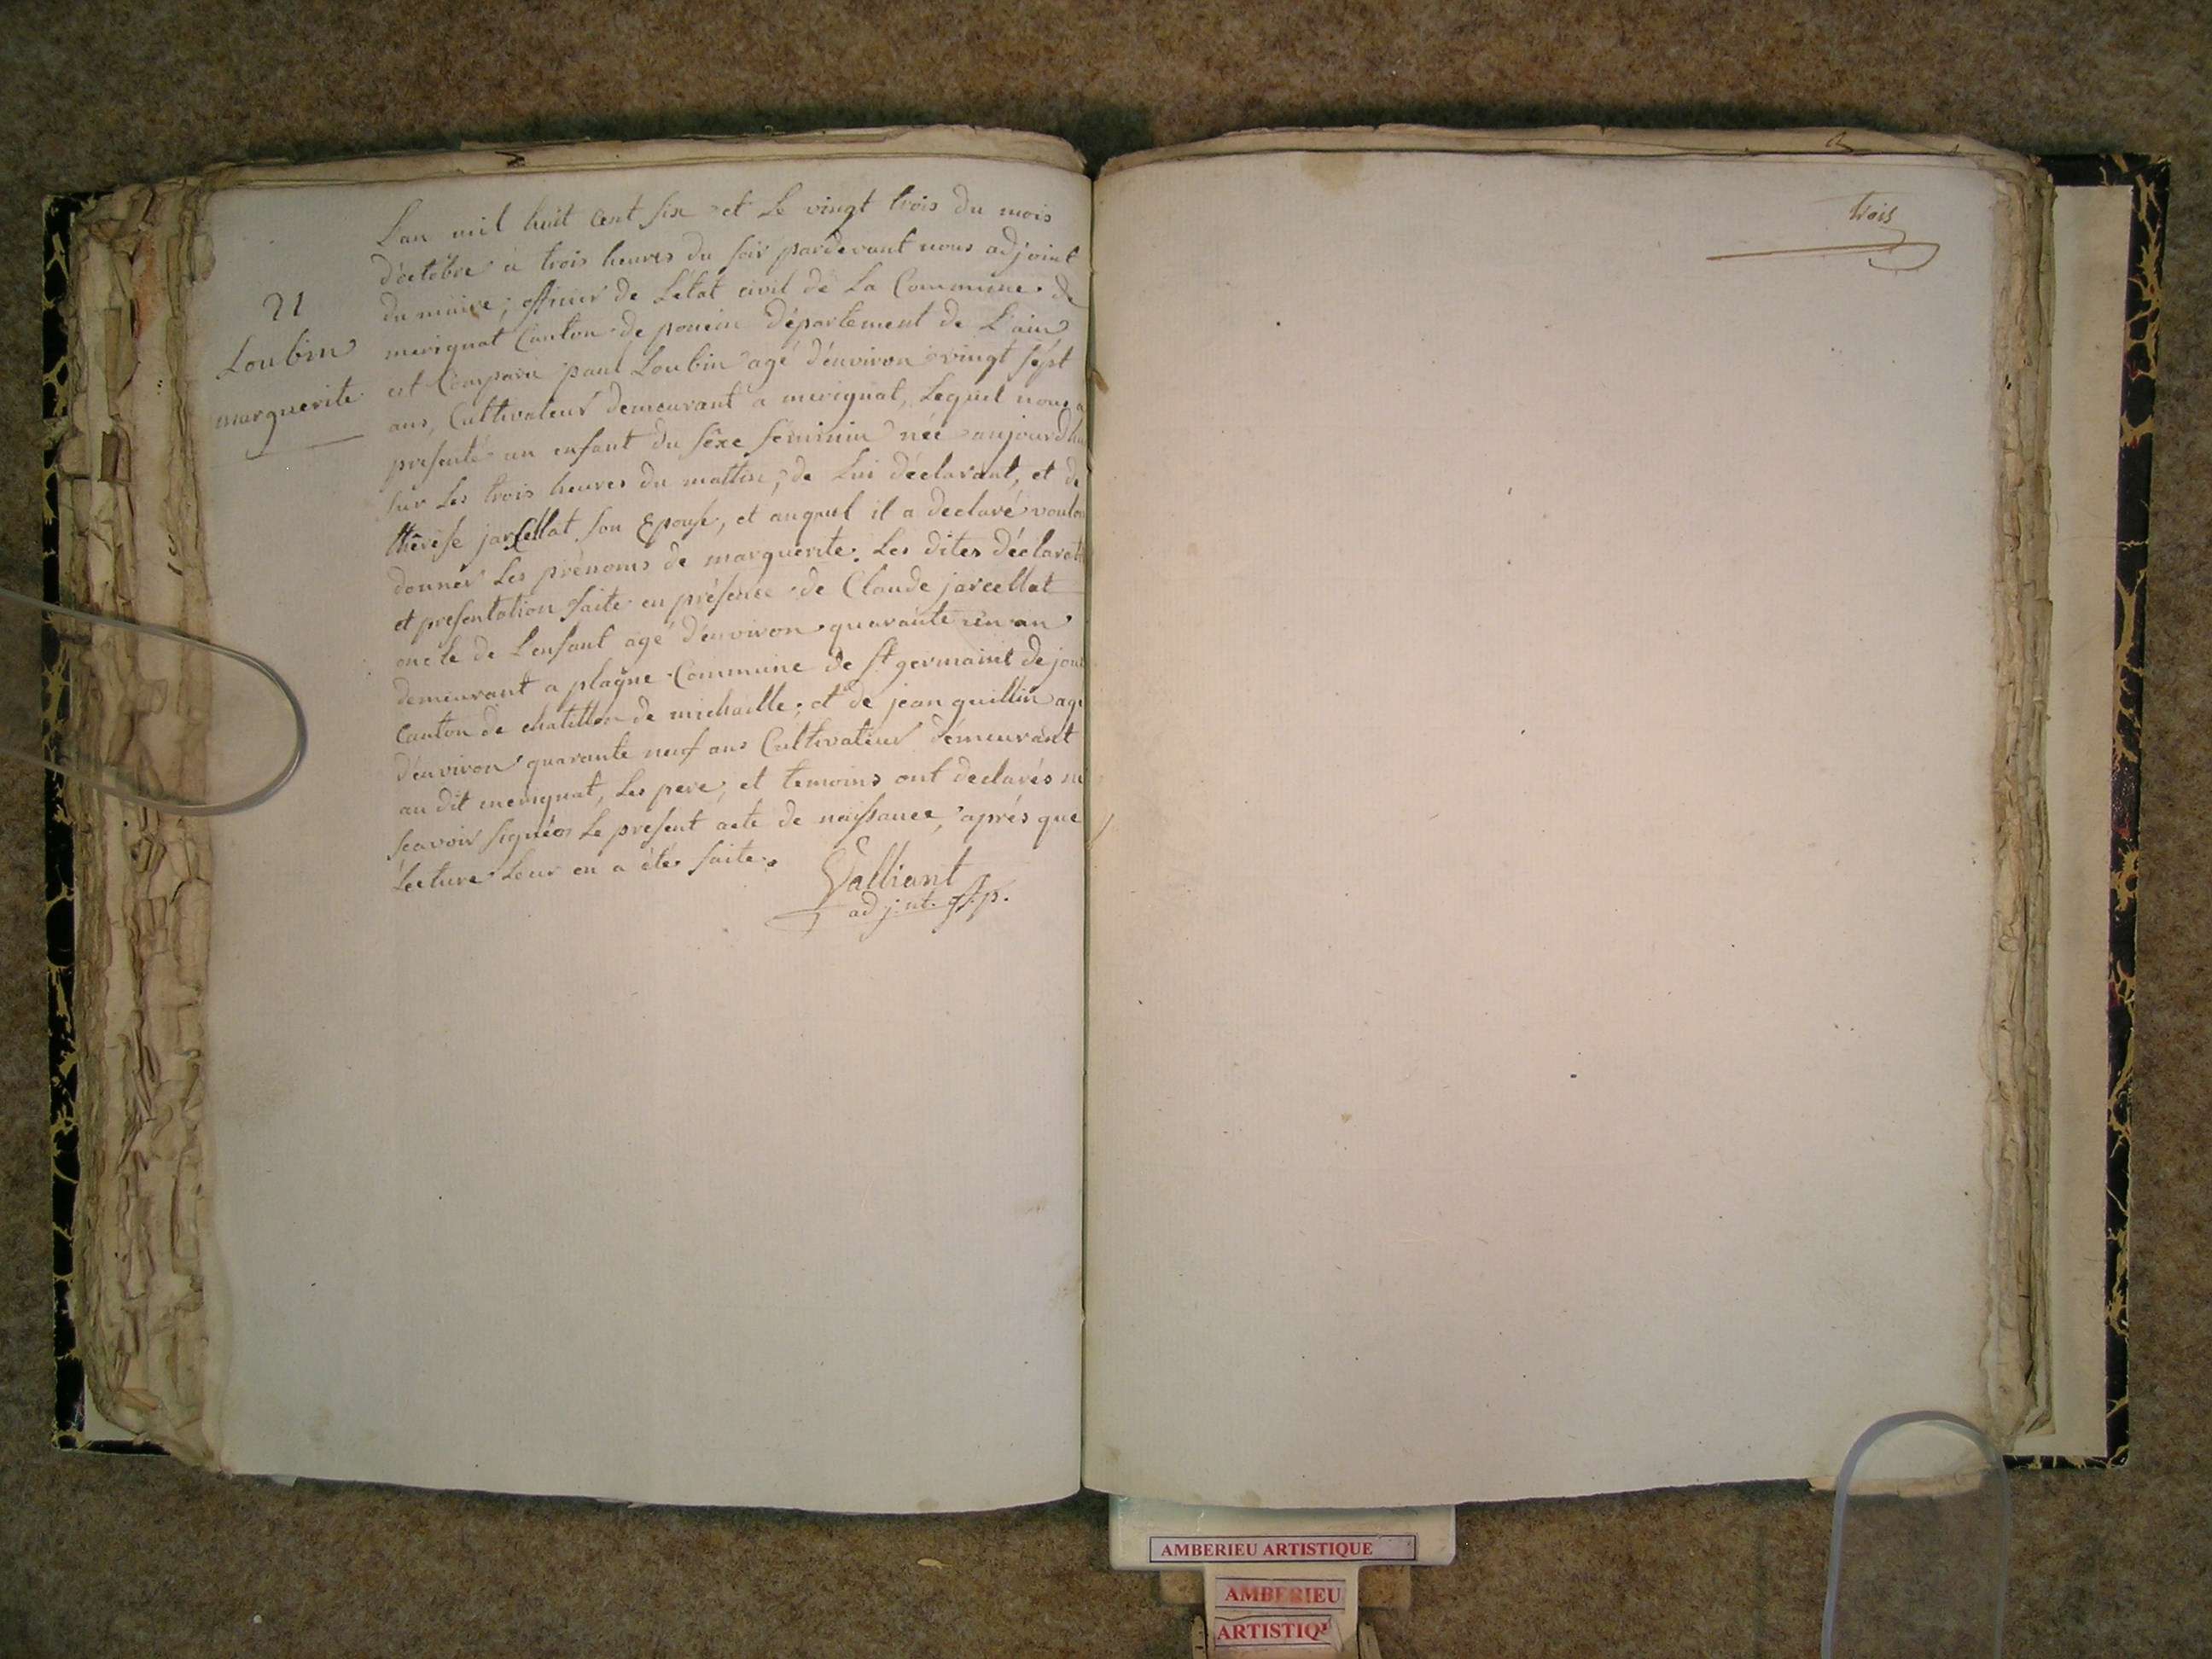 21
Loubin
marguerite
L'an mil huit Cent six et Le vingt trois du mois
d'octobre à trois heures du soir pardevant nous adjoint
du maire; officier de L'état civil de La Commune de
merignat Canton de poncin département de L'ain
est Comparu paul Loubin agé d'environ vingt sept
ans, Cultivateur demeurant a merignat, Lequel nous a
presenté un enfant du sêxe féminin née aujourdhu
sur Les trois heures du mattin, de Lui déclarant, et de
thêrèse jarcellat son Epouse, et auquel il a declaré voulo
donner Les prénoms de marguerite. Les dites déclarat
et presentation faite en présence de Claude jarcellat
oncle de L'enfant agé d'environ quarante un an
demeurant a plagne Commune de St germaint de joux
Canton de chatillon de michaille; et de jean guillin agé
d'environ quarante neuf ans Cultivateur demeurant
au dit merignat, Les pere, et temoins ont declarés ne
scavoir signées Le present acte de naissance, aprés que
Lecture Leur en a étés faite.
Valliant
adjnt.
trois
AMBERIEU ARTISTIQUE
AMBERIEU
ARTISTIQ